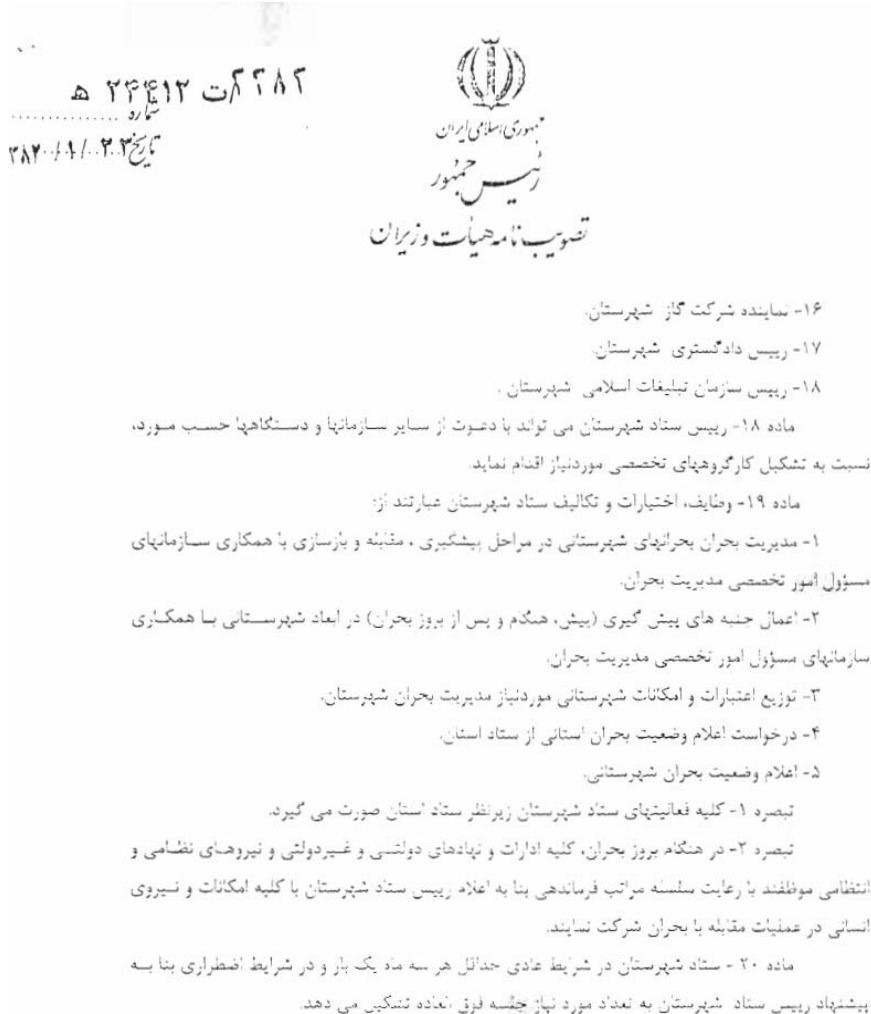 ۲۸۲۸۲ت ۲۴۴۱۲ ه
شماره
تاریخ ۳۸۲۰/۱/۰۲۰۳
جمهوری اسلامی ایران
رئیس جمهور
تصویب نامه هیأت وزیران
۱۶- نماینده شرکت گاز شهرستان.
۱۷- رییس دادگستری شهرستان.
۱۸- رییس سازمان تبلیغات اسلامی شهرستان .
ماده ۱۸- رییس ستاد شهرستان می تواند با دعوت از سایر سازمانها و دستگاهها حسب مورد،
نسبت به تشکیل کارگروههای تخصصی موردنیاز اقدام نماید.
ماده ۱۹- وظایف، اختیارات و تکالیف ستاد شهرستان عبارتند از:
۱- مدیریت بحران بحرانهای شهرستانی در مراحل پیشگیری ، مقابله و بازسازی با همکاری سازمانهای
مسؤول امور تخصصی مدیریت بحران.
۲- اعمال جنبه های پیش گیری (پیش، هنگام و پس از بروز بحران) در ابعاد شهرستانی با همکاری
سازمانهای مسؤول امور تخصصی مدیریت بحران.
۳- توزیع اعتبارات و امکانات شهرستانی موردنیاز مدیریت بحران شهرستان.
۴- درخواست اعلام وضعیت بحران استانی از ستاد استان.
۵- اعلام وضعیت بحران شهرستانی.
تبصره ۱- کلیه فعالیتهای ستاد شهرستان زیرنظر ستاد استان صورت می گیرد.
تبصره ۲- در هنگام بروز بحران، کلیه ادارات و نهادهای دولتی و غیردولتی و نیروهای نظامی و
انتظامی موظفند با رعایت سلسله مراتب فرماندهی بنا به اعلام رییس ستاد شهرستان با کلیه امکانات و نیروی
انسانی در عملیات مقابله با بحران شرکت نمایند.
ماده ۲۰ - ستاد شهرستان در شرایط عادی حداقل هر سه ماه یک بار و در شرایط اضطراری بنا به
پیشنهاد رییس ستاد شهرستان به تعداد مورد نیاز جلسه فوق العاده تشکیل می دهد.